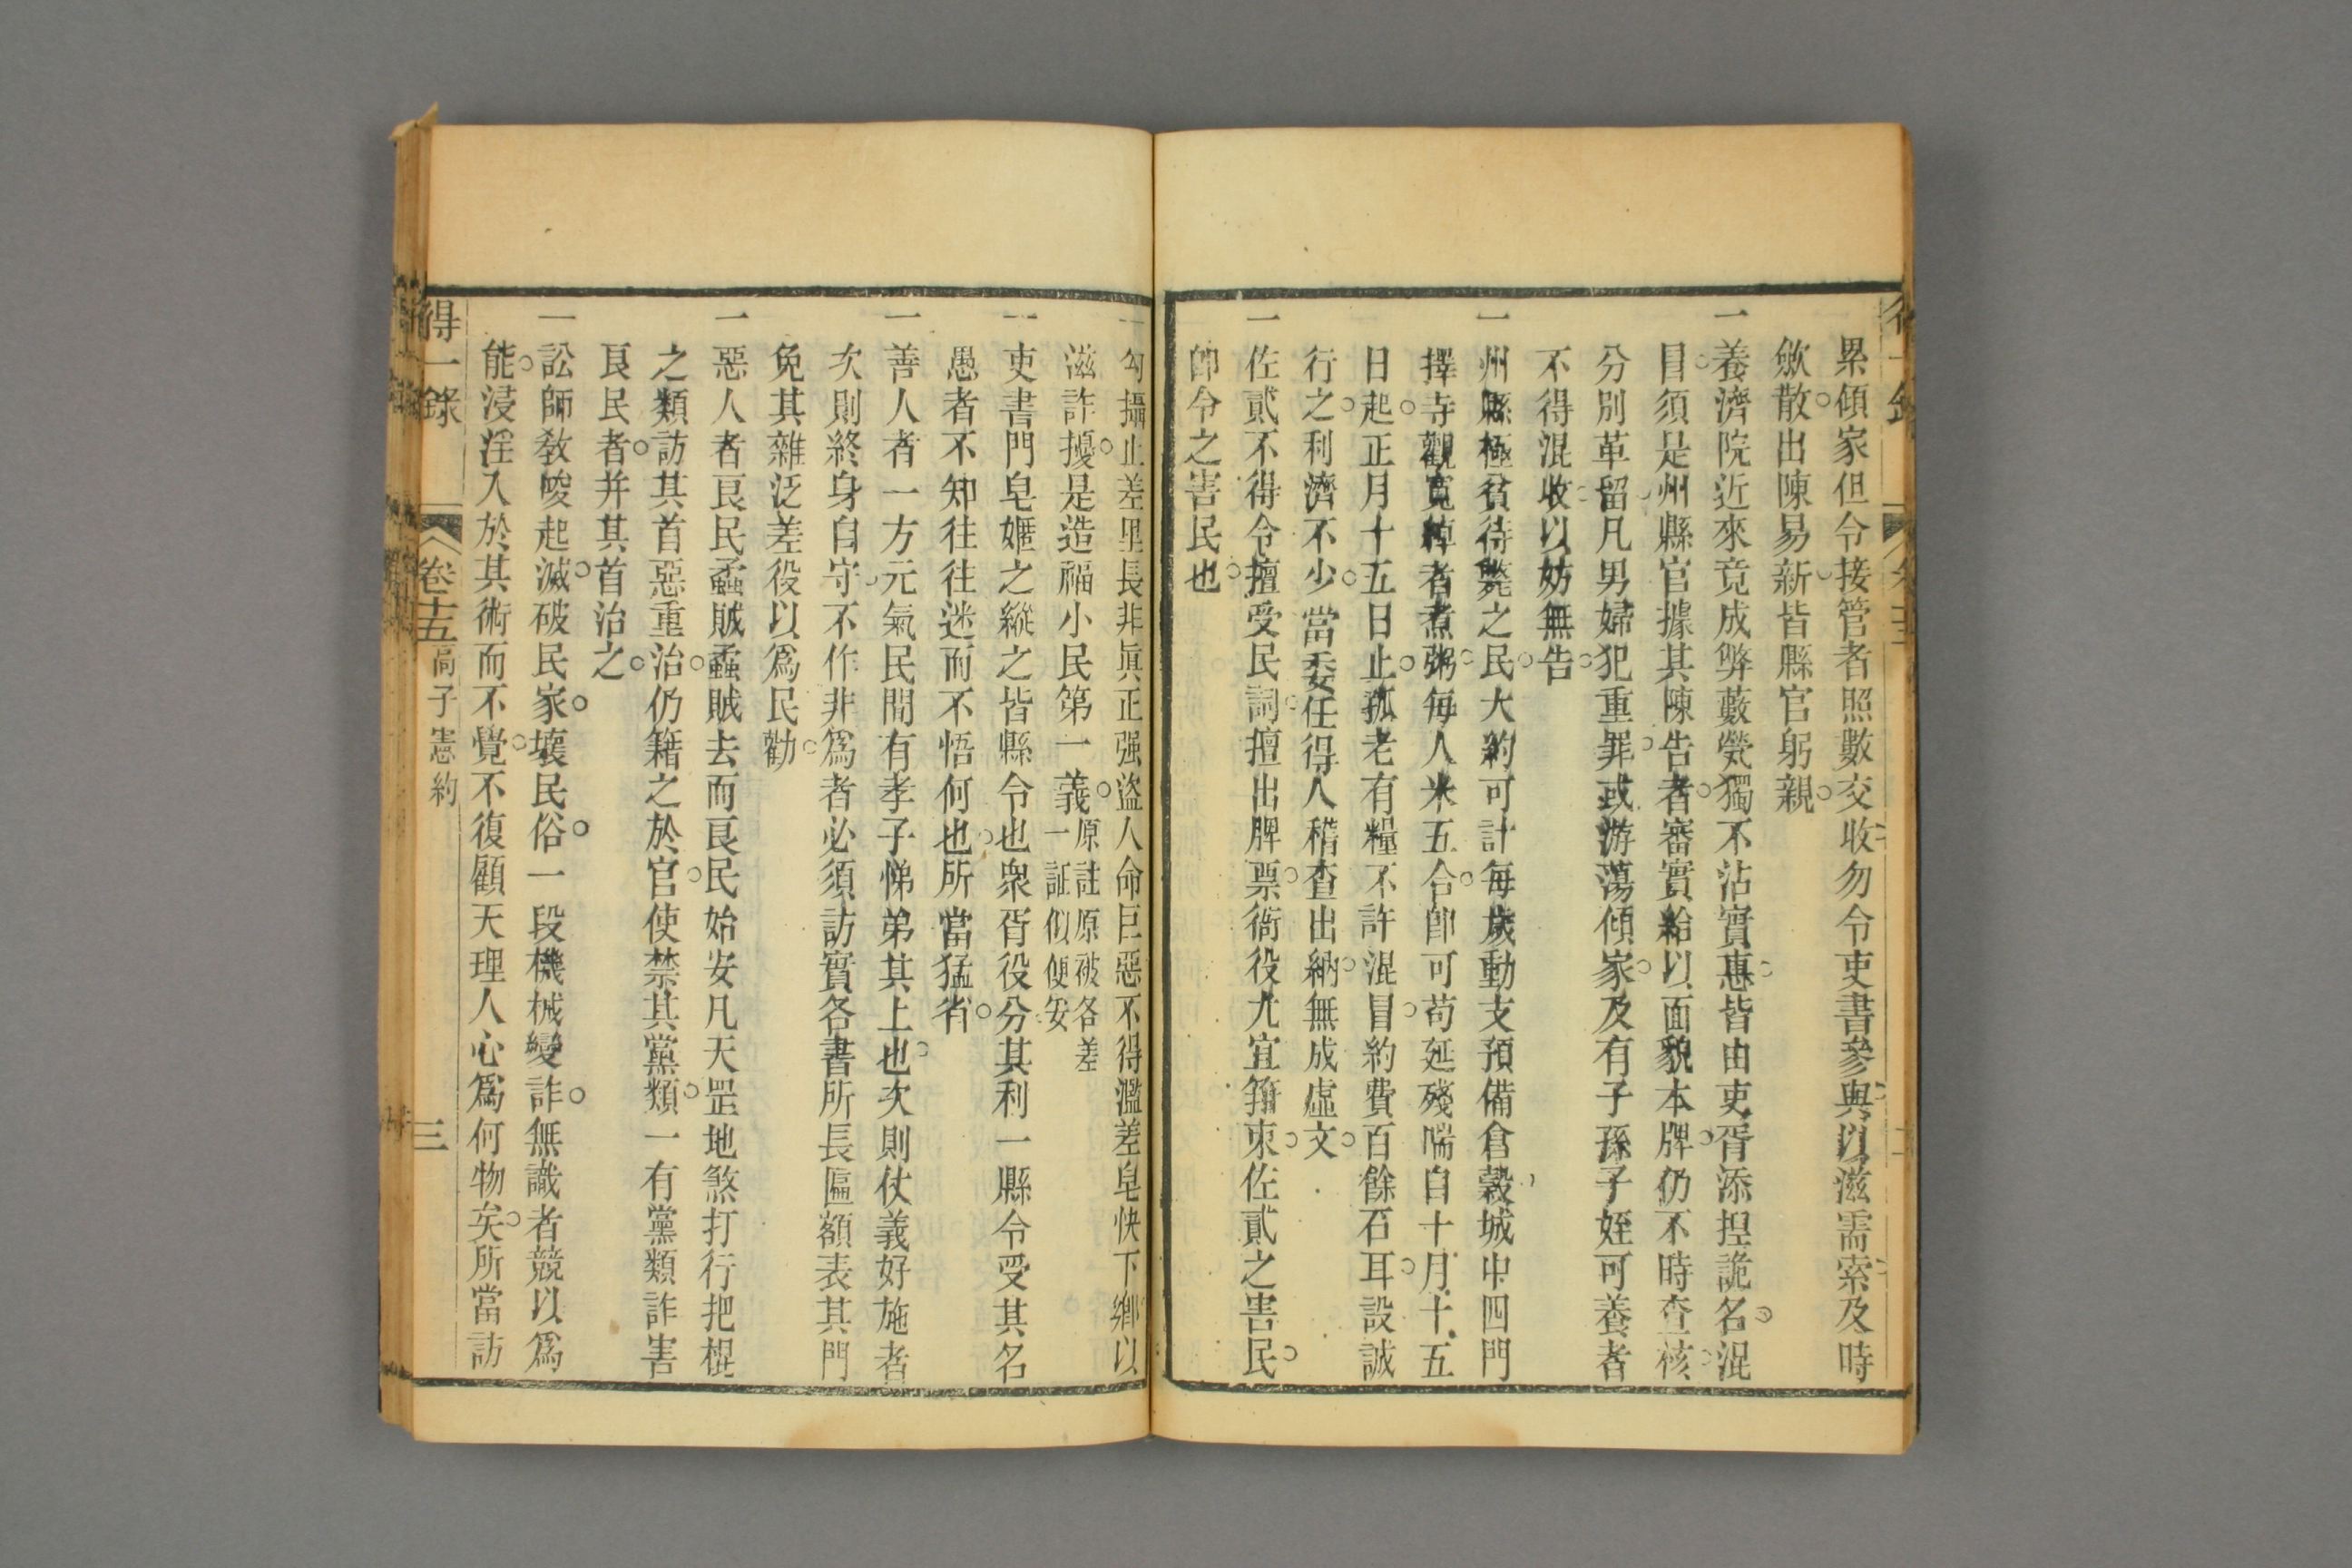 累傾家但令接管者照數交收勿令吏書參與以滋需索及時
斂散出陳易新皆縣官躬親
一養濟院近來竟成弊藪煢獨不沾實惠皆由吏胥添捏詭名混
冒須是州縣官據其陳告者審實給以面貌本牌仍不時查核
分別革留凡男婦犯重罪或游蕩傾家及有子孫子姪可養者
不得混收以妨無告
一州縣極貧待斃之民大約可計每歲動支預備倉穀城中四門
擇寺觀寬綽者煮粥每人米五合卽可苟延殘喘自十月十五
日起正月十五日止孤老有糧不許混冒約費百餘石耳設誠
行之利濟不少當委任得人稽查出納無成虛文
一佐貳不得令擅受民詞擅出牌票衙役尤宜箝束佐貳之害民
卽令之害民也
一勾攝止差里長非眞正强盜人命巨惡不得濫差皂快下鄉以
滋詐擾是造福小民第一義原註原被各差
一証似便安
一吏書門皂嬺之縱之皆縣令也衆胥役分其利一縣令受其名
愚者不知往往迷而不悟何也所當猛省
一善人者一方元氣民間有孝子悌弟其上也次則仗義好施者
次則終身自守不作非爲者必須訪實各書所長匾額表其門
免其雜泛差役以爲民勸
一惡人者良民蟊賊蟊賊去而良民始安凡天罡地煞打行把棍
之類訪其首惡重治仍籍之於官使禁其黨類一有黨類詐害
良民者并其首治之
一訟師敎唆起滅破民家壞民俗一段機械變詐無識者競以爲
能浸淫入於其術而不覺不復顧天理人心爲何物矣所當訪
得一錄 卷十五 高子憲約 三